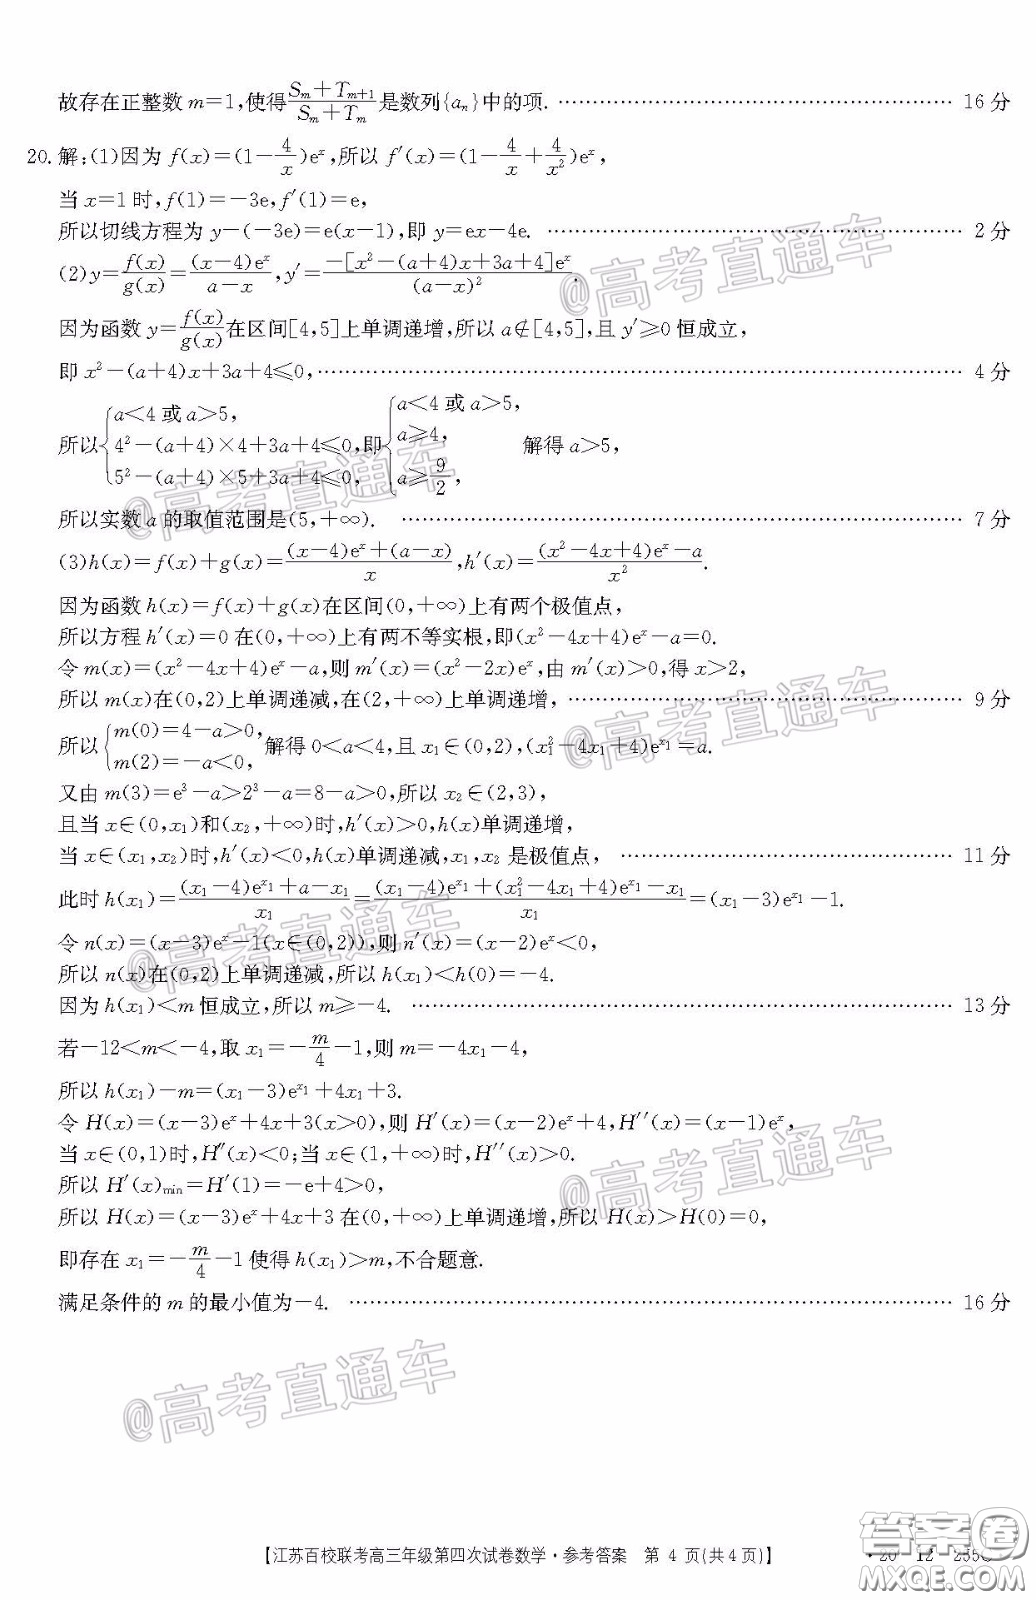 故存在正整数 m=1,使得(S_m+T_{m+1})/(S_m+T_m)是数列{a_n}中的项. 16 分
20. 解:(1)因为 f(x)=(1-4/x)e^x,所以 f′(x)=(1-4/x+4/x²)e^x,
当 x=1 时,f(1)=-3e,f′(1)=e,
所以切线方程为 y-(-3e)=e(x-1),即 y=ex-4e. 2 分
(2)y=f(x)/g(x)=(x-4)e^x/(a-x),y′=-[x²-(a+4)x+3a+4]e^x/(a-x)².
因为函数 y=f(x)/g(x)在区间[4,5]上单调递增,所以 a∉[4,5],且 y′⩾0 恒成立,
即 x²-(a+4)x+3a+4⩽0, 4 分
所以{a<4 或 a>5, 4²-(a+4)×4+3a+4⩽0, 5²-(a+4)×5+3a+4⩽0,即{a<4 或 a>5, a⩾4, a⩾9/2, 解得 a>5,
所以实数 a 的取值范围是(5,+∞). 7 分
(3)h(x)=f(x)+g(x)=((x-4)e^x+(a-x))/x,h′(x)=((x²-4x+4)e^x-a)/x².
因为函数 h(x)=f(x)+g(x)在区间(0,+∞)上有两个极值点,
所以方程 h′(x)=0 在(0,+∞)上有两不等实根,即(x²-4x+4)e^x-a=0.
令 m(x)=(x²-4x+4)e^x-a,则 m′(x)=(x²-2x)e^x,由 m′(x)>0,得 x>2,
所以 m(x)在(0,2)上单调递减,在(2,+∞)上单调递增, 9 分
所以{m(0)=4-a>0, m(2)=-a<0, 解得 0<a<4,且 x₁∈(0,2),(x₁²-4x₁+4)e^{x₁}=a.
又由 m(3)=e³-a>2³-a=8-a>0,所以 x₂∈(2,3),
且当 x∈(0,x₁)和(x₂,+∞)时,h′(x)>0,h(x)单调递增,
当 x∈(x₁,x₂)时,h′(x)<0,h(x)单调递减,x₁,x₂ 是极值点, 11 分
此时 h(x₁)=((x₁-4)e^{x₁}+a-x₁)/x₁=((x₁-4)e^{x₁}+(x₁²-4x₁+4)e^{x₁}-x₁)/x₁=(x₁-3)e^{x₁}-1.
令 n(x)=(x-3)e^x-1(x∈(0,2)),则 n′(x)=(x-2)e^x<0,
所以 n(x)在(0,2)上单调递减,所以 h(x₁)<h(0)=-4.
因为 h(x₁)<m 恒成立,所以 m⩾-4. 13 分
若-12<m<-4,取 x₁=-m/4-1,则 m=-4x₁-4,
所以 h(x₁)-m=(x₁-3)e^{x₁}+4x₁+3.
令 H(x)=(x-3)e^x+4x+3(x>0),则 H′(x)=(x-2)e^x+4,H′′(x)=(x-1)e^x,
当 x∈(0,1)时,H″(x)<0;当 x∈(1,+∞)时,H′′(x)>0.
所以 H′(x)_min=H′(1)=-e+4>0,
所以 H(x)=(x-3)e^x+4x+3 在(0,+∞)上单调递增,所以 H(x)>H(0)=0,
即存在 x₁=-m/4-1 使得 h(x₁)>m,不合题意.
满足条件的 m 的最小值为-4. 16 分
@高考直通车
@高考直通车
@高考直通车
@高考直通车
@高考直通车
@高考直通车
【江苏百校联考高三年级第四次试卷数学·参考答案 第 4 页(共4页)】
答案卷
MXQE.COM